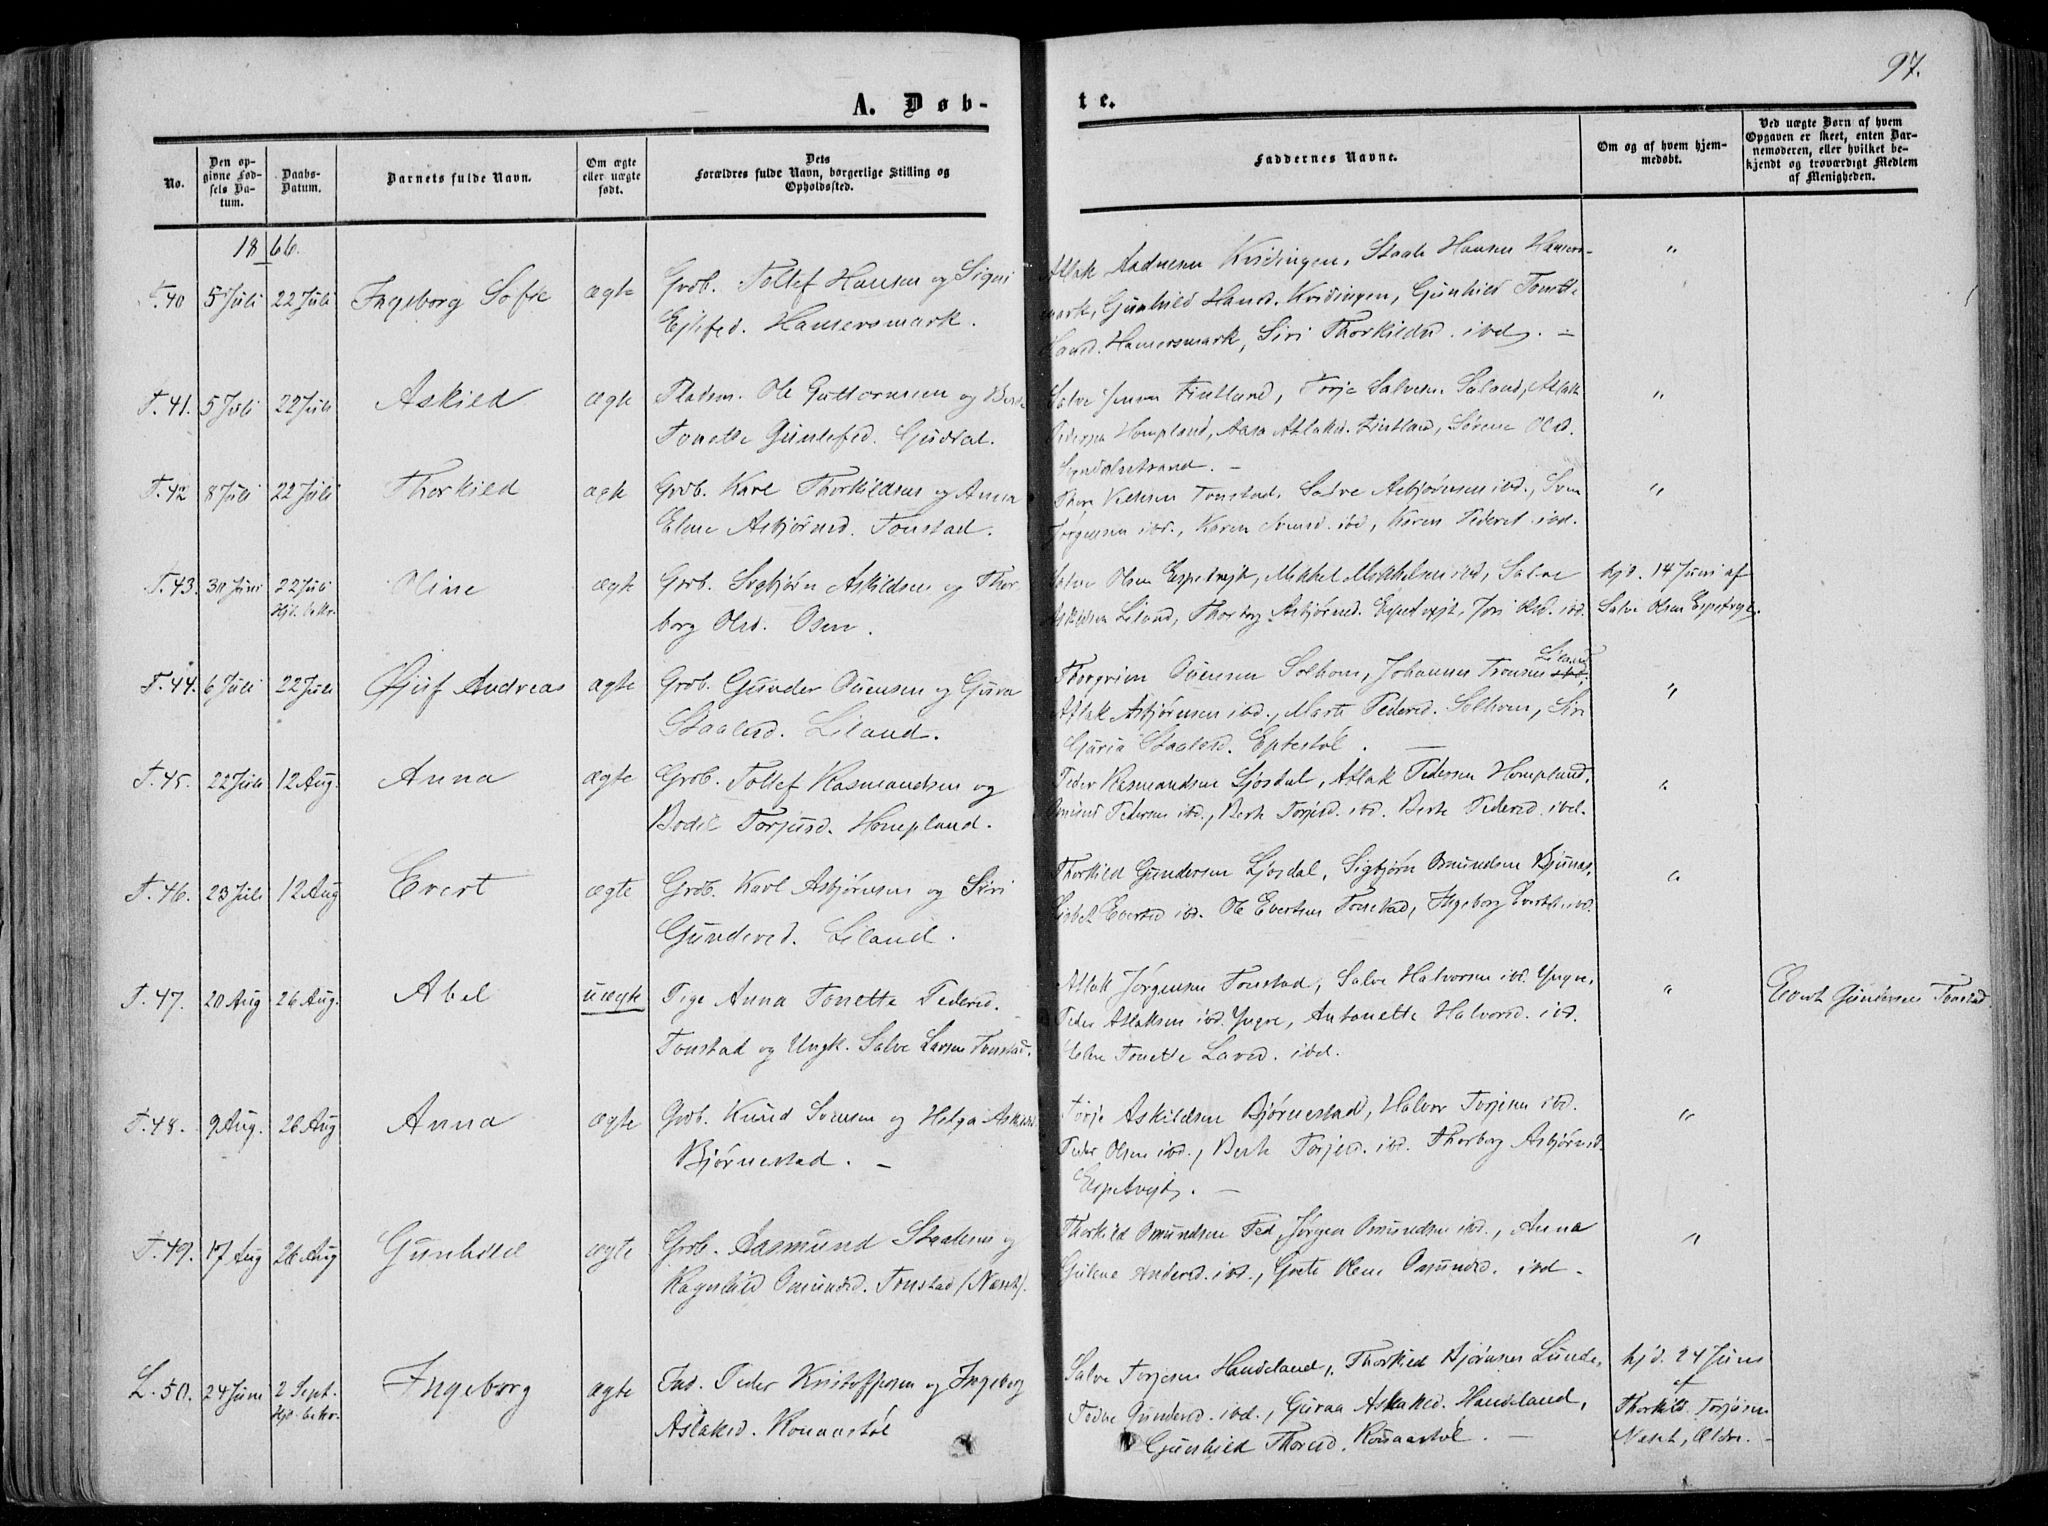 97.
A. Døb-
te.
No.
Den op-
givne Fød-
sels Da-
tum.
Daabs-
Datum.
Barnets fulde Navn.
Om ægte
eller uægte
født.
Dets
Forældres fulde Navn, borgerlige Stilling og
Opholdssted.
Faddernes Navne.
Om og af hvem hjem-
medøbt.
Ved uægte Børn af hvem
Opgaven er skeet, enten Bar-
nemoderen, eller hvilket be-
kjendt og troværdigt Medlem
af Menigheden.
1866.
T. 40 5 Juli 22 Juli Ingeborg Sofie ægte Grdb. Tollef Hansen og Signi
Ejlefsd. Hamersmark.
Atlak Aadnesen Kvidingen, Staale Hansen Hamers-
mark, Gunhild Hansd. Kvidingen, Gunhild Tonette
Hansd. Hamersmark, Siri Thorkildsd. ibd. –
"
T. 41. 5 Juli 22 Juli Askild ægte Pladsm. Ole Guttormsen og Berte
Tonette Gunlefsd. Gusdal.
Salve Jensen Fintland, Torje Salvesen Saland, Atlak
Pedersen Hompland, Aasa Atlaksd. Fintland, Sørene Olsd.
"
T. 42 8 Juli 22 Juli Thorkild ægte Grdb. Karl Thorkildsen og Anna
Elene Asbjørnsd. Tonstad.
Thore Tonstad, Salve Asbjørnsen ibd., Sven
Jørgensen ibd., Karen Svensd. ibd, Karen Pedersd. ibd.
"
T. 43. 30 Juni 22 Juli Oline ægte Grdb. Sigbjørn Askildsen og Thor
Hjd. bekr.
borg Olsd. Osen.
Salve Olsen Espetvejt, Mikkel Mikkelsen ibd, Salve
Askildsen Liland, Thorborg Asbjørnsd. Espetvejt, Olsd. ibd.
hjd. 14 Juni af
Salve Olsen Espetvejt.
T. 44. 6 Juli 22 Juli Andreas ægte Grdb. Gunder Ouensen og Gura
Staalesd. Liland.
Thorgrim Ouensen Solhom, Johannes Tronsen Liland,
Atlak Asbjørnsen ibd., Marte Pedersd. Solhom, Siri
Guria Staalesd. Eptestøl. –
"
T. 45. 22 Juli 12 Aug. Anna ægte Grdb. Tollef Rasmundsen og
Bodil Torjusd. Hompland.
Peder Rasmundsen Ljosdal, Atlak Pedersen Hompland,
Omund Pedersen ibd., Berte Torjesd. ibd. Berte Pedersd. ibd.
"
T. 46. 23 Juli 12 Aug Evert ægte Grdb. Karl Asbjørnsen og Siri
Gundersd. Liland.
Thorkild Gundersen Ljosdal, Sigbjørn Omundsen Bjunes,
Lisbet Evertsd ibd. Ole Evertsen Tonstad, Ingeborg Evertsd. ibd.
"
T. 47. 20 Aug 26 Aug. Abel uægte Pige Anna Tonette Pedersd.
Tonstad og Ungk. Salve Larsen Tonstad.
Atlak Jørgensen Tonstad, Salve Halvorsen ibd. Yngre,
Peder Atlaksen ibd. Yngre, Antonette Halvorsd. ibd.
Tonette Larsd. ibd.
"
Evert Gundersen Tonstad.
T. 48. 9 Aug. 26 Aug Anna ægte Grdb. Knud Svensen og Helga Askildsd.
Bjørnestad. –
Torje Askildsen Bjørnestad, Halvor Torjesen ibd.
Peder Olsen ibd., Berte Torjesd. ibd. Thorborg Asbjørnsd.
Espetvejt. –
"
T. 49. 17 Aug 26 Aug Gunhild ægte Grdb. Aasmund Staalesen og
Ragnhild Omundsd. Tonstad (Næset).
Thorkild Omundsen Fed, Jørgen Omundsen ibd., Anna
Gulene Andersd. ibd., Grete Olene Omundsd. ibd –
"
L. 50. 24 Juni 2 Sept. Ingeborg ægte Ind. Peder Kristoffersen og Ingeborg
Hjd. bekr.
Aslaksd. Konaastøl
Salve Torjesen Handeland, Thorkild Bjørnsen Lunde,
Gundersd. ibd., Guraa Aslaksd. Handeland,
Gunhild Thoresd. Konaastøl. –
hjd. 24 Juni
af
Thorkild Torjusen
Næset, Ældre. –